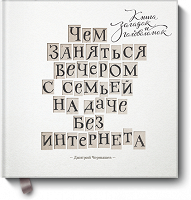 Книга
загадок и
головоломок
ЧЕМ
ЗАНЯТЬСЯ
ВЕЧЕРОМ
С СЕМЬЕЙ
НА ДАЧЕ
БЕЗ
ИНТЕРНЕТА
Дмитрий Чернышев